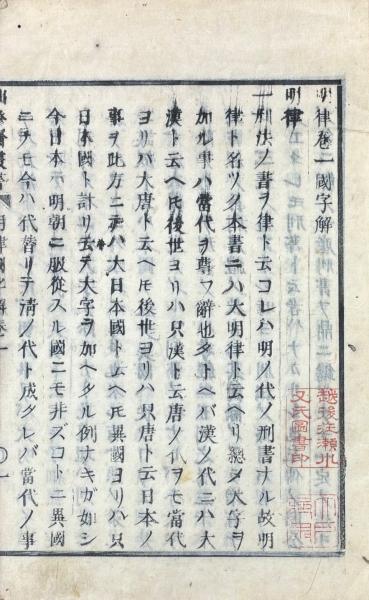 明律卷一國字解
明律
一刑法ノ書ヲ律ト云コレハ明ノ代ノ刑書ナル故明
律ト名ツク本書ニハ大明律ト云ヘリ總メ大字ヲ
加ル事ハ當代ヲ尊フ辭也タトヘバ漢ノ代ニハ大
漢ト云ヘ𪜈後世ヨリハ只漢ト云唐ノ代ヲモ當代
ヨリハ大唐ト云ヘ𪜈後世ヨリハ只唐ト云日本ノ
事ヲ此方ニテハ大日本國ト云ヘ𪜈異國ヨリハ只
日本國ト計リ云テ大字ヲ加ヘタル例ナキガ如シ
今日本テ明朝ニ服從スル國ニモ非ズコトニ異國
ニテモ今ハ代替リテ淸ノ代ト成タレバ當代ノ事
圖書印